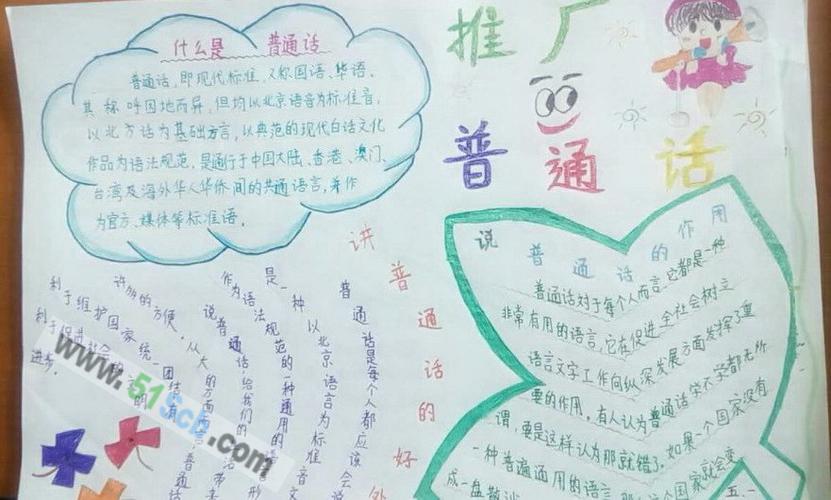 推广
普通话
什么是 普通话
普通话,即现代标准,又称国语、华语,
其称呼因地而异,但均以北京语音为标准音,
以北方话为基础方言,以典范的现代白话文化
作品为语法规范,是通行于中国大陆、香港、澳门、
台湾及海外华人华侨间的共通语言,并作
为官方、媒体等标准语。
讲普通话的好处
普通话是每个人都应该会说
一种以北京语言为标准音
是
作为语法规范的一种通用的语言形
说普通话,给我们的
许多的方便,从大的方面
利于维护国家统一团结有
利于促进社会
进步。
说普通话的作用
普通话对于每个人而言,它都是一种
非常有用的语言,它在促进全社会树立
语言文字工作向纵深发展方面发挥了重
要的作用。有人认为普通话学不学都无所
谓,要是这样认为那就错了。如果一个国家没有
一种普遍通用的语言
个国家就会变
成一盘散沙
五.一
www.51Sch.com